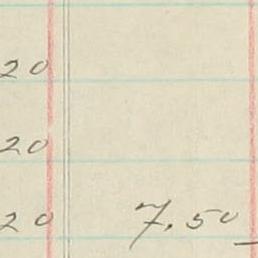 20
20
20 7.50